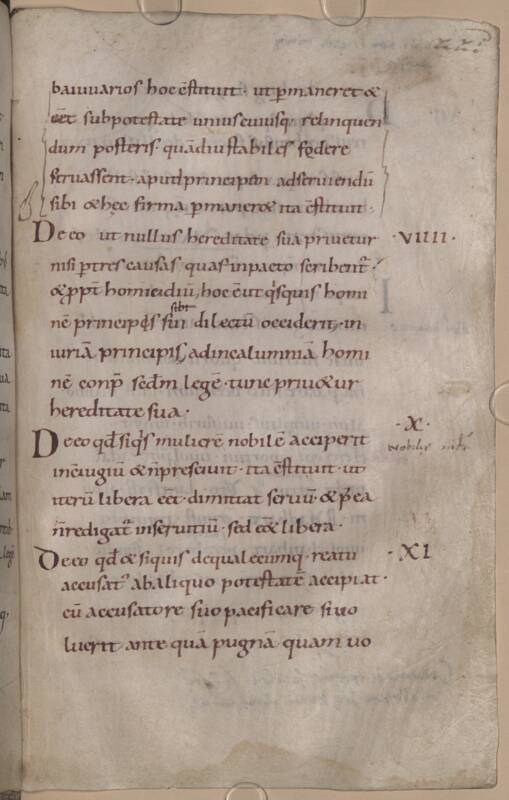 baiuuarios hoc ēstituit · ut p̄maneret &
eēt subpotestate uniuscuiusq; relinquen
dum posteris quādiu stabiles fędere
seruassent · aputprincipem adseruiendū
sibi & hęc firma p̄maner& ita ēstituit ·
De eo ut nullus hereditate sua priuetur · VIIII ·
nisi p tres causas quas inpacto scribent̄
& ꝓpt̄ homicidiū, hoc ē ut q̇squis homi
nē principis sibi dilectū occiderit, in
iuriā principis, adincalumniā homi
nē conp̄ sedm̄ legē · tunc priu&ur
hereditate sua ·
De eo qd̄ siq̇s mulierē nobilē acciperit · X ·
nobilis
iterū libera eēt · dimittat seruū & p̄ ea
n̄redigat̄ inseruitiū · sed eēt libera ·
De eo qd̄ & siquis dequalecumq; reatu · XI
accusat᾽ abaliquo potestatē accipiat ·
cū accusatore suo pacificare si uo
luerit ante quā pugnā quam uo